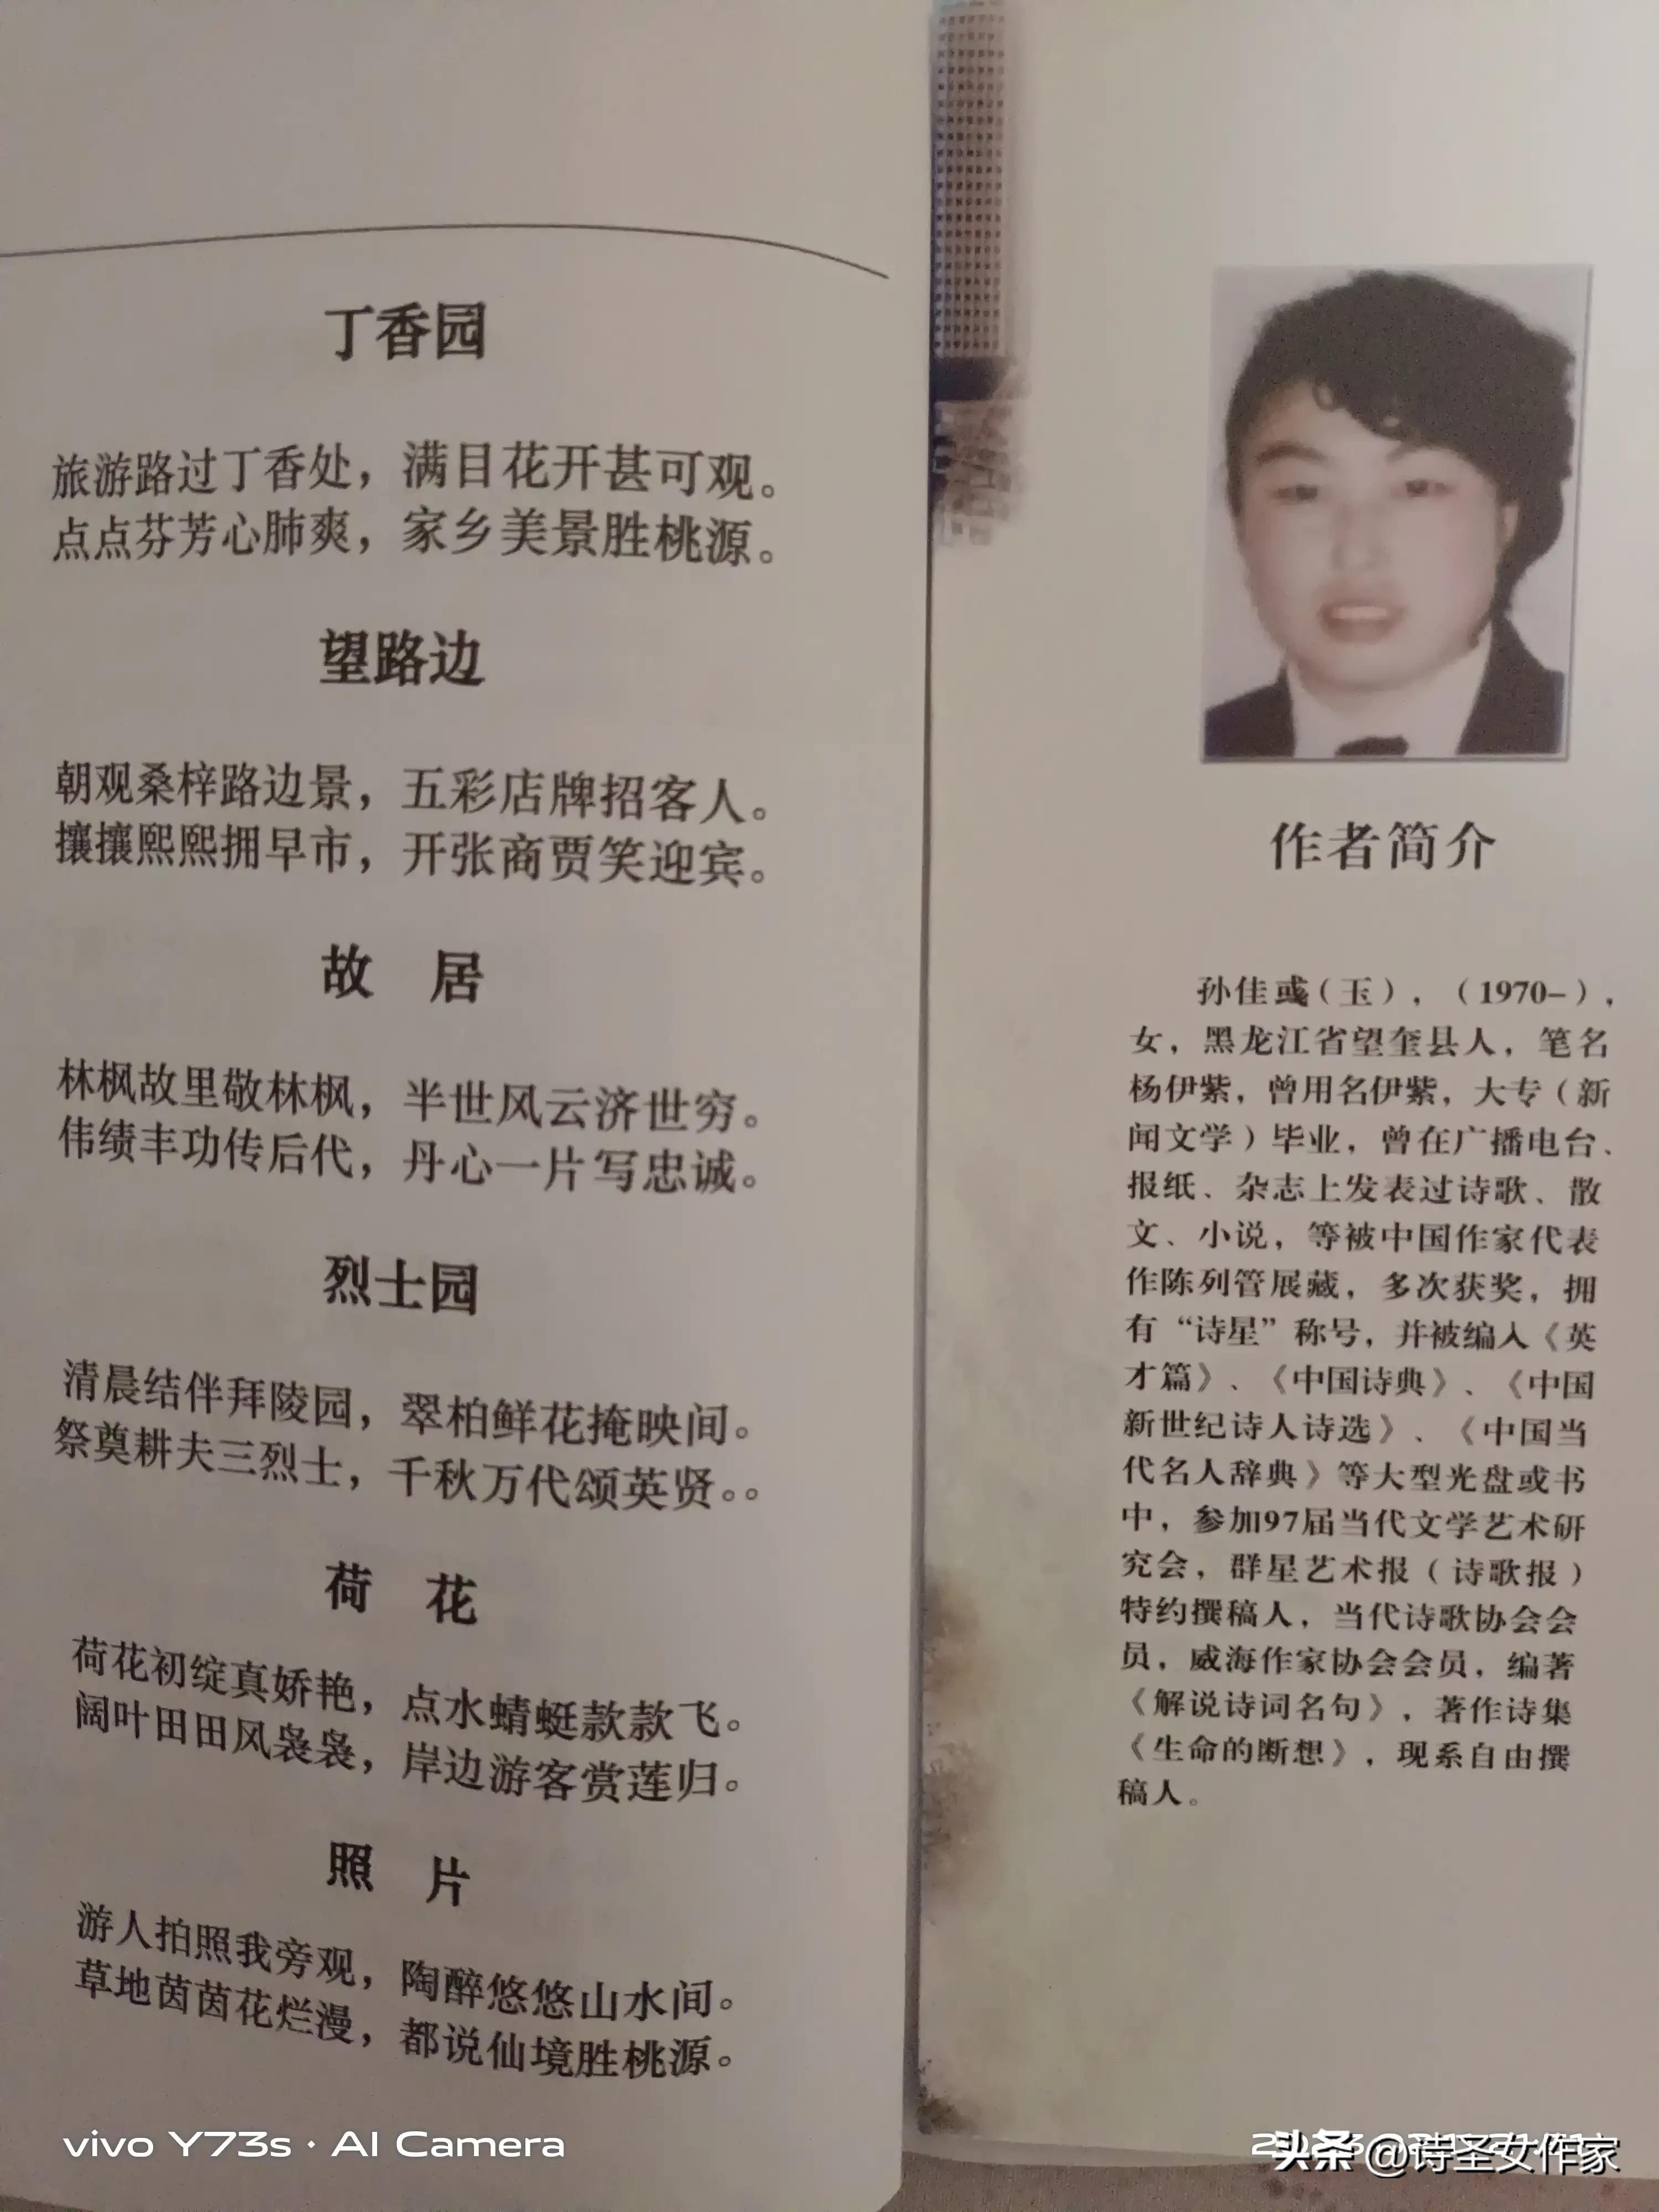 丁香园
旅游路过丁香处，满目花开甚可观。
点点芬芳心肺爽，家乡美景胜桃源。
望路边
朝观桑梓路边景，五彩店牌招客人。
攘攘熙熙拥早市，开张商贾笑迎宾。
故 居
林枫故里敬林枫，半世风云济世穷。
伟绩丰功传后代，丹心一片写忠诚。
烈士园
清晨结伴拜陵园，翠柏鲜花掩映间。
祭奠耕夫三烈士，千秋万代颂英贤。。
荷 花
荷花初绽真娇艳，点水蜻蜓款款飞。
阔叶田田风袅袅，岸边游客赏莲归。
照 片
游人拍照我旁观，陶醉悠悠山水间。
草地茵茵花烂漫，都说仙境胜桃源。
作者简介
孙佳彧（玉），（1970-），
女，黑龙江省望奎县人，笔名
杨伊紫，曾用名伊紫，大专（新
闻文学）毕业，曾在广播电台、
报纸、杂志上发表过诗歌、散
文、小说，等被中国作家代表
作陈列管展藏，多次获奖，拥
有“诗星”称号，并被编入《英
才篇》、《中国诗典》、《中国
新世纪诗人诗选》、《中国当
代名人辞典》等大型光盘或书
中，参加97届当代文学艺术研
究会，群星艺术报（诗歌报）
特约撰稿人，当代诗歌协会会
员，威海作家协会会员，编著
《解说诗词名句》，著作诗集
《生命的断想》，现系自由撰
稿人。
vivo Y73s · AI Camera
头条 @诗圣女作家